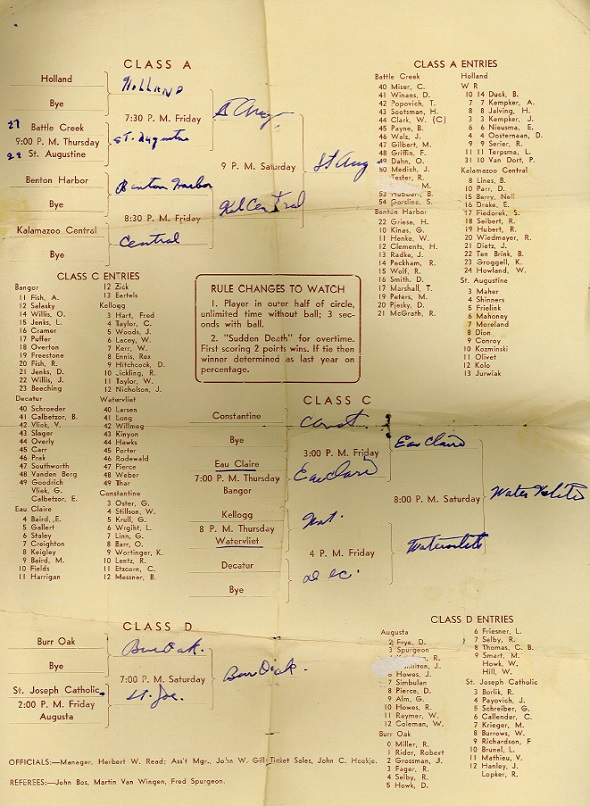 CLASS A
Holland
Holland
Bye
7:30 P. M. Friday
St Aug.
27
Battle Creek
9:00 P. M. Thursday
St. Augustine
St. Augustine
9 P. M. Saturday
St Aug
Benton Harbor
Benton Harbor
Bye
8:30 P. M. Friday
Kal Central
Kalamazoo Central
Central
Bye
CLASS A ENTRIES
Battle Creek
40 Miser, C.
41 Winans, D.
42 Popovich, T.
43 Sootsman, H.
44 Clark, W. (C)
45 Payne, B.
46 Walz, J.
47 Gilbert, M.
48 Griffin, F.
49 Dahn, O.
50 Medich, J.
Tester, R.
M.
53
54 Gorsline, S.
Benton Harbor
22 Griese, H.
10 Kinas, G.
11 Henke, W.
12 Clements, H.
13 Radke, J.
14 Peckham, R.
15 Wolf, R.
16 Smith, D.
17 Marshall, T.
19 Peters, M.
20 Pjesky, D.
21 McGrath, R.
Holland
W R
10 14 Duck, B.
7 7 Kempker, A.
8 8 Jalving, H.
3 3 Kempker, J.
6 6 Nieusma, E.
4 4 Oosternean, D.
9 9 Serier, R.
11 11 Terpsma, L.
31 10 Van Dort, P.
Kalamazoo Central
8 Linas, B.
10 Parr, D.
15 Berry, Noll
16 Drake, E.
17 Fiedorek, S.
18 Seibert, R.
19 Hubert, R.
20 Wiedmayer, R.
21 Dietz, J.
22 Ten Brink, B.
23 Groggell, K.
24 Howland, W.
St. Augustine
3 Maher
4 Shinners
5 Frielink
6 Mahoney
7 Moreland
8 Dion
9 Conroy
10 Kozminski
11 Olivet
12 Kolo
13 Jurwiak
CLASS C ENTRIES
Bangor
11 Fish, A.
12 Salasky
14 Willis, O.
15 Jenks, L.
16 Cramer
17 Puffer
18 Overton
19 Freestone
20 Fish, R.
21 Jenks, D.
22 Willis, J.
23 Beeching
Decatur
40 Schroeder
41 Calbetzor, B.
42 Vliek, V.
43 Slager
44 Overly
45 Carr
46 Prak
47 Southworth
48 Vanden Berg
49 Goodrich
Vliek, G.
Calbetzor, E.
Eau Claire
4 Baird, E.
5 Gallert
6 Staley
7 Creighton
8 Keigley
9 Baird, M.
10 Fields
11 Harrigan
12 Zick
13 Bartels
Kellogg
3 Hart, Fred
4 Taylor, C.
5 Woods, J.
6 Lacey, W.
7 Kerr, W.
8 Ennis, Rex
9 Hitchcock, D.
10 Jickling, R.
11 Taylor, W.
12 Nicholson, J.
Watervliet
40 Larsen
41 Long
42 Willmeg
43 Kinyon
44 Hawks
45 Porter
46 Radewald
47 Pierce
48 Weber
49 Thar
Constantine
3 Oster, G.
4 Stillson, W.
5 Krull, G.
6 Wright, L.
7 Linn, G.
8 Barr, O.
9 Wortinger, K.
10 Lentz, R.
11 Etzcorn, C.
12 Messner, B.
RULE CHANGES TO WATCH
1. Player in outer half of circle,
unlimited time without ball; 3 sec-
onds with ball.
2. "Sudden Death" for overtime.
First scoring 2 points wins. If tie then
winner determined as last year on
percentage.
CLASS C
Constantine
Const.
Bye
3:00 P. M. Friday
Eau Claire
Eau Claire
7:00 P. M. Thursday
Eau Claire
Bangor
8:00 P. M. Saturday
Kellogg
Wat.
8 P. M. Thursday
4 P. M. Friday
Watervliet
Decatur
Dec.
Bye
CLASS D
Burr Oak
Burr Oak.
Bye
7:00 P. M. Saturday
Burr Oak.
St. Joseph Catholic
St. Joe.
2:00 P. M. Friday
Augusta
CLASS D ENTRIES
Augusta
2 Frye, D.
3 Spurgeon
6 Howes, J.
7 Simbulan
8 Pierce, D.
9 Alm, G.
10 Howes, R.
11 Raymer, W.
12 Coleman, W.
Burr Oak
0 Miller, R.
1 Rider, Robert
2 Grossman, J.
3 Fager, R.
4 Selby, R.
5 Howk, D.
6 Friesner, L.
7 Selby, R.
8 Thomas, C. B.
9 Smart, M.
Howk, W.
Hill, W.
St. Joseph Catholic
3 Borlik, R.
4 Payovich, J.
5 Schreiber, G.
6 Callender, C.
7 Krieger, M.
8 Burrows, W.
9 Richardson, F
10 Brunel, L.
11 Mathieu, V.
12 Hanley, J.
Lopker, R.
OFFICIALS:—Manager, Herbert W. Read; Ass't Mgr., John W. Gill; Ticket Sales, John C. Hoekje.
REFEREES:—John Bos, Martin Van Wingen, Fred Spurgeon.